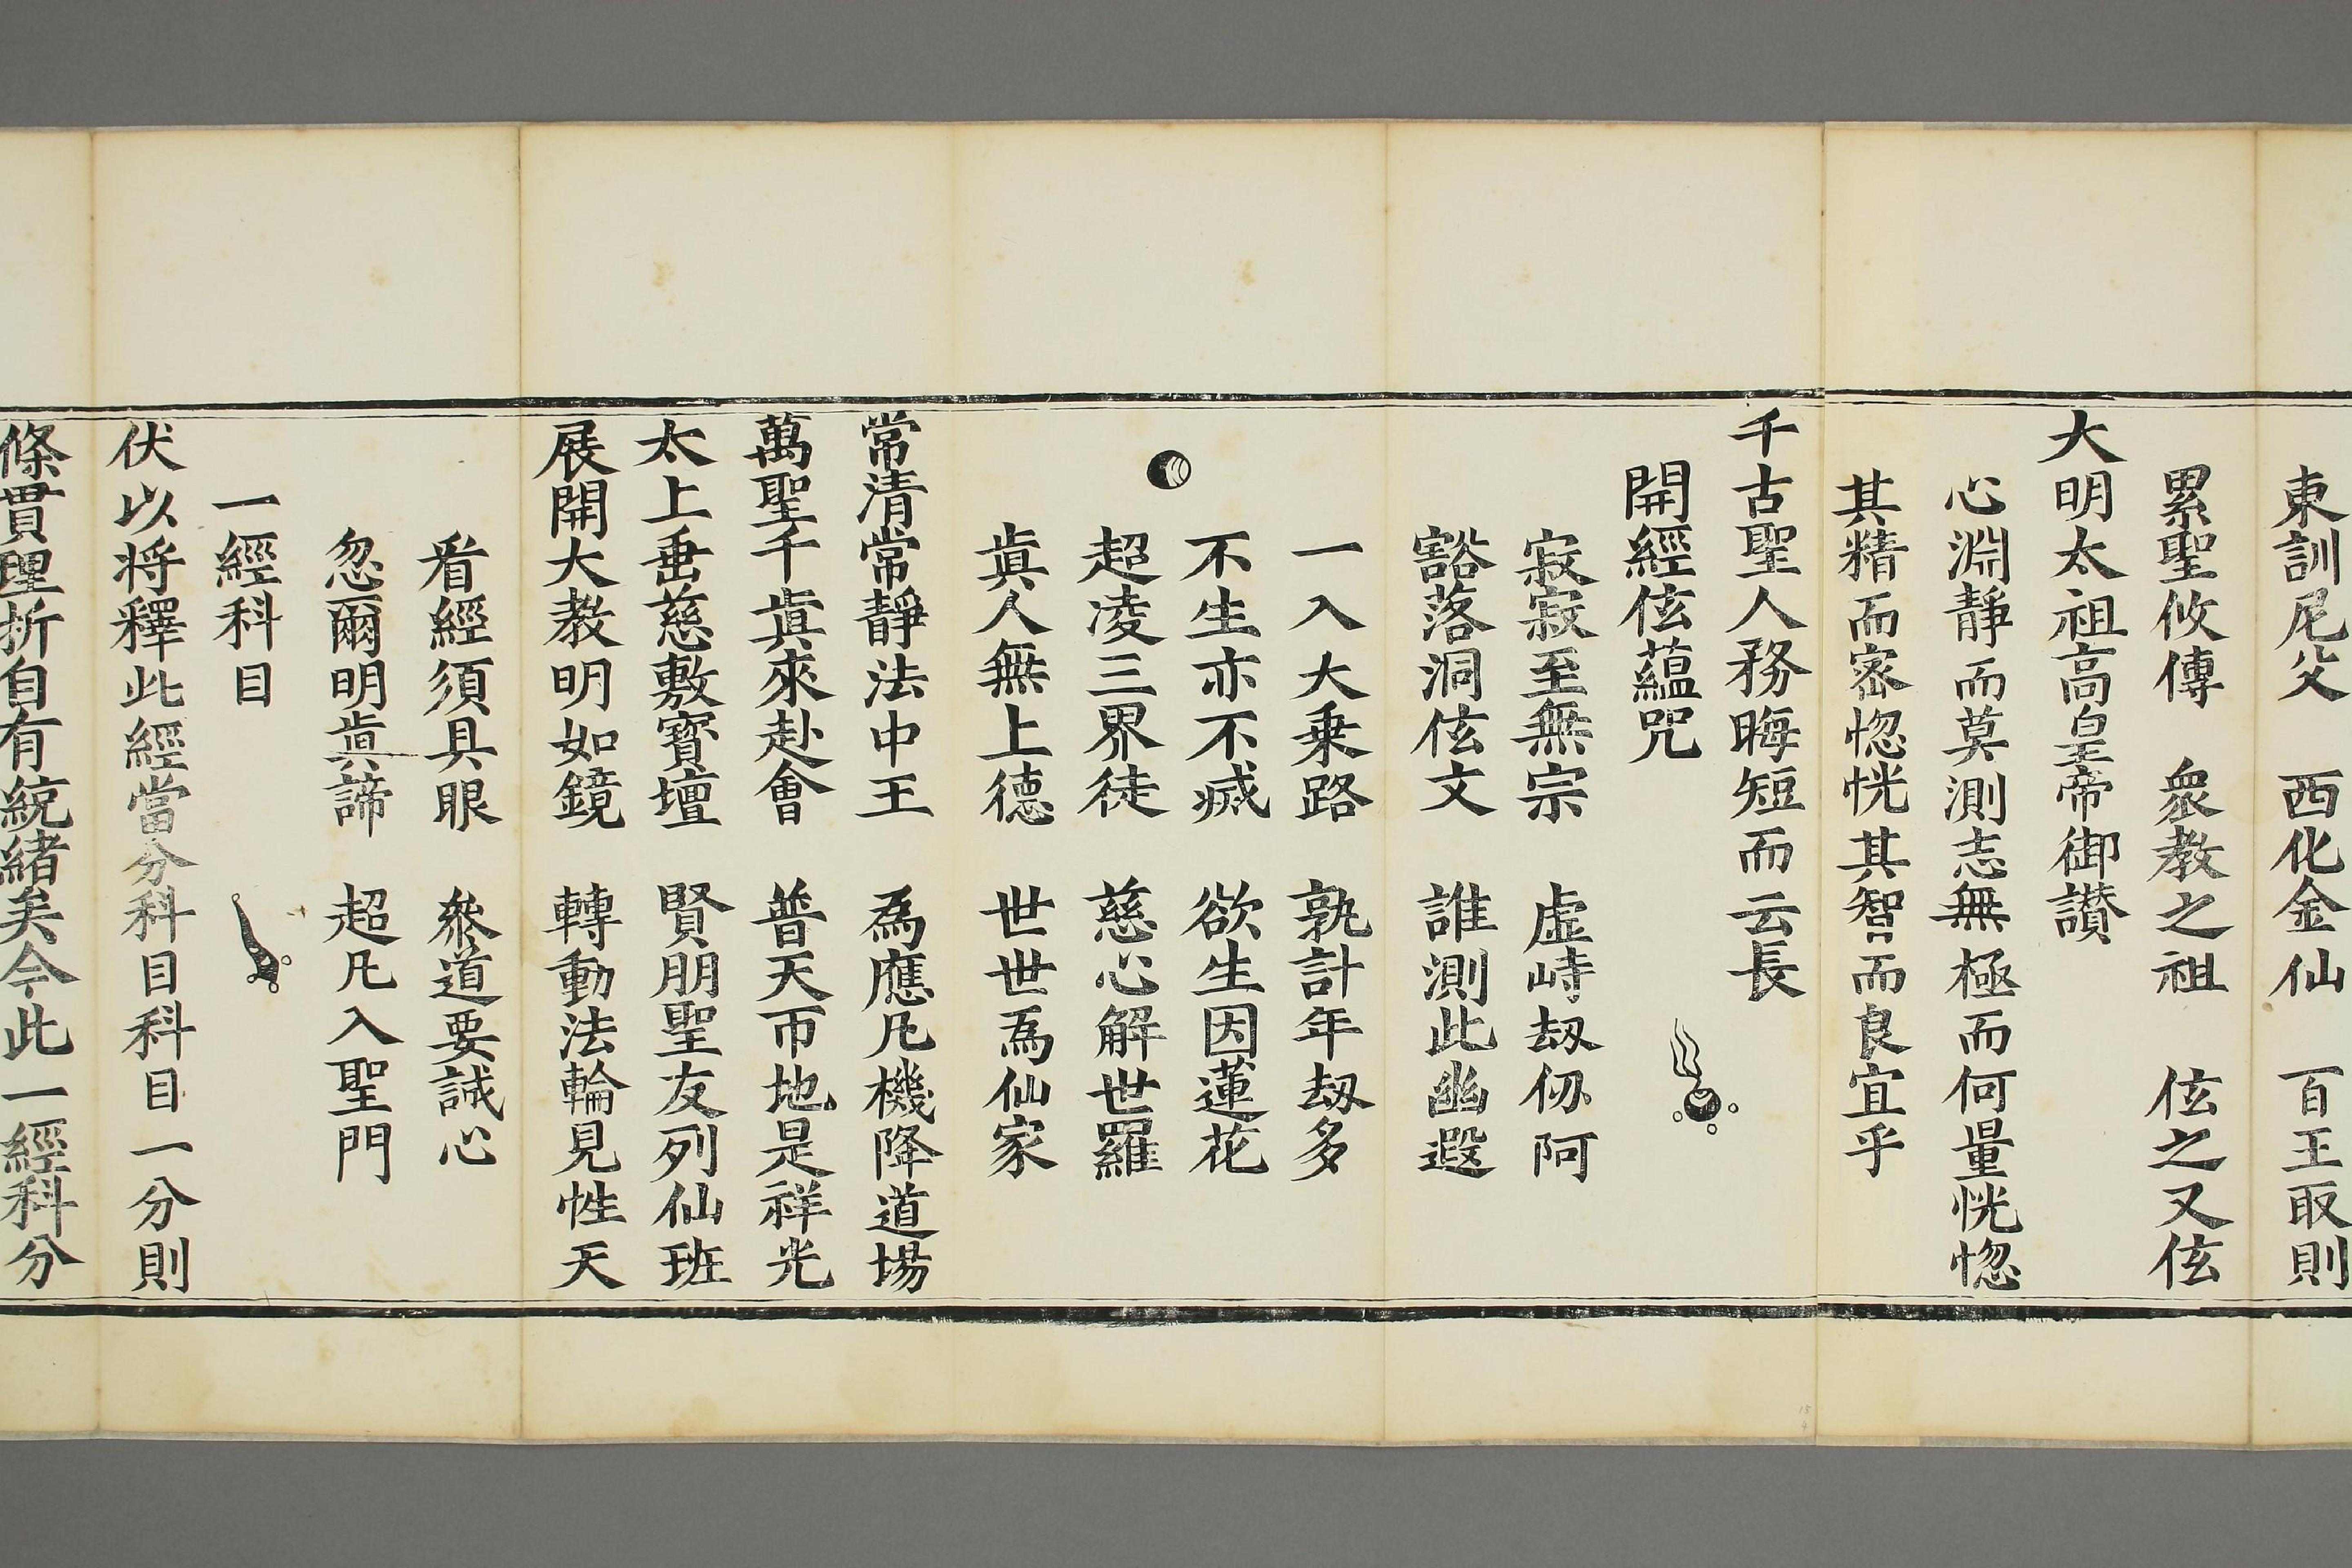 東訓尼父 西化金仙 百王取則
累聖攸傳 衆教之祖 伭之又伭
大明太祖高皇帝御讃
心淵靜而莫測志無極而何量恍惚
其精而宻惚恍其智而良宜乎
千古聖人務晦短而云長
開經伭蘊咒
寂寂至無宗 虛峙刼仞阿
豁落洞伭文 誰測此幽遐
一入大乗路 孰計年刼多
不生亦不滅 欲生因蓮花
超凌三界徒 慈心解世羅
眞人無上德 世世爲仙家
常清常靜法中王 爲應凡機降道場
萬聖千眞來赴會 普天帀地是祥光
太上垂慈敷寳壇 賢朋聖友列仙班
展開大教明如鏡 轉動法輪見性天
看經須具眼 叅道要誠心
忽爾明眞諦 超凡入聖門
一經科目
伏以将釋此經當分科目科目一分則
條貫理折自有統緒矣今此一經科分